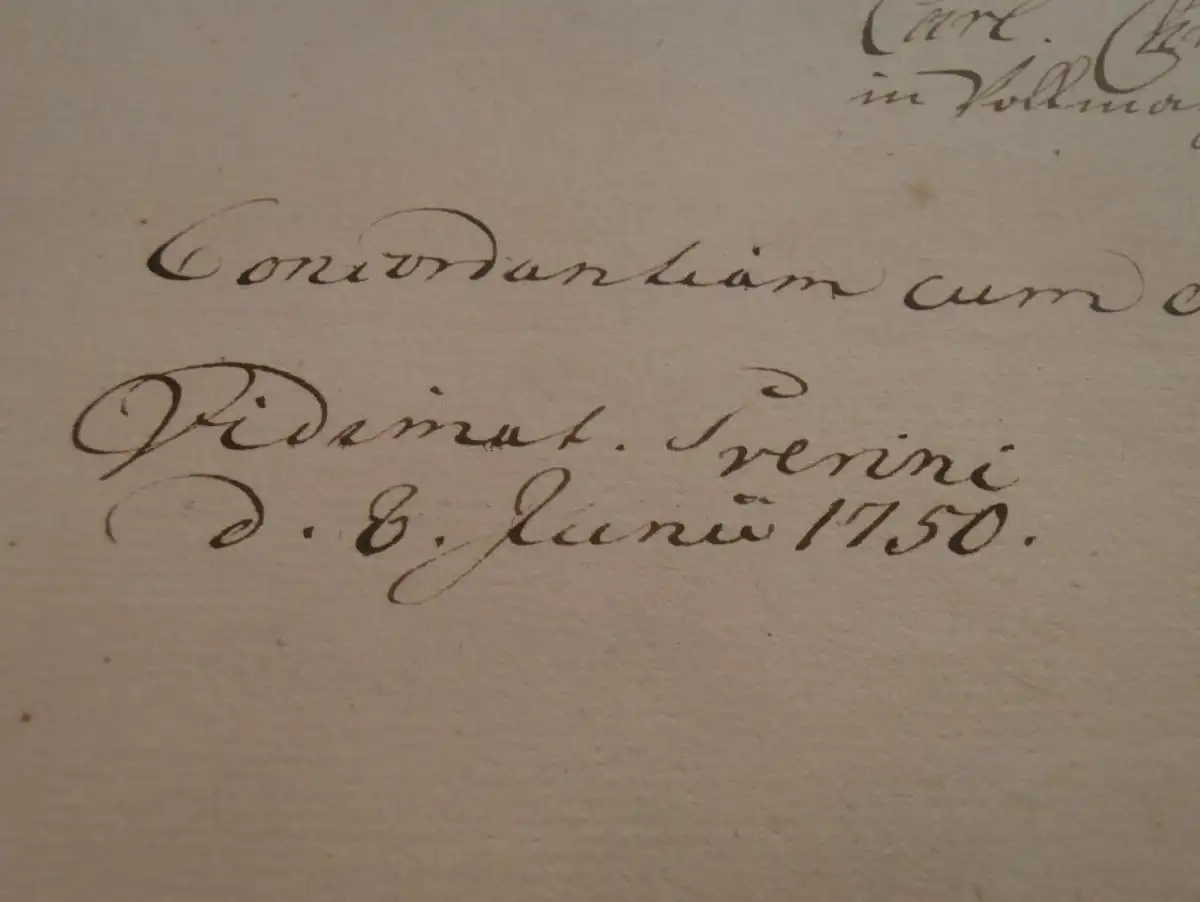 Carl.
in Vollma
Concordantiam cum
Vidimat. Prerini
d. 6. Junii 1750.